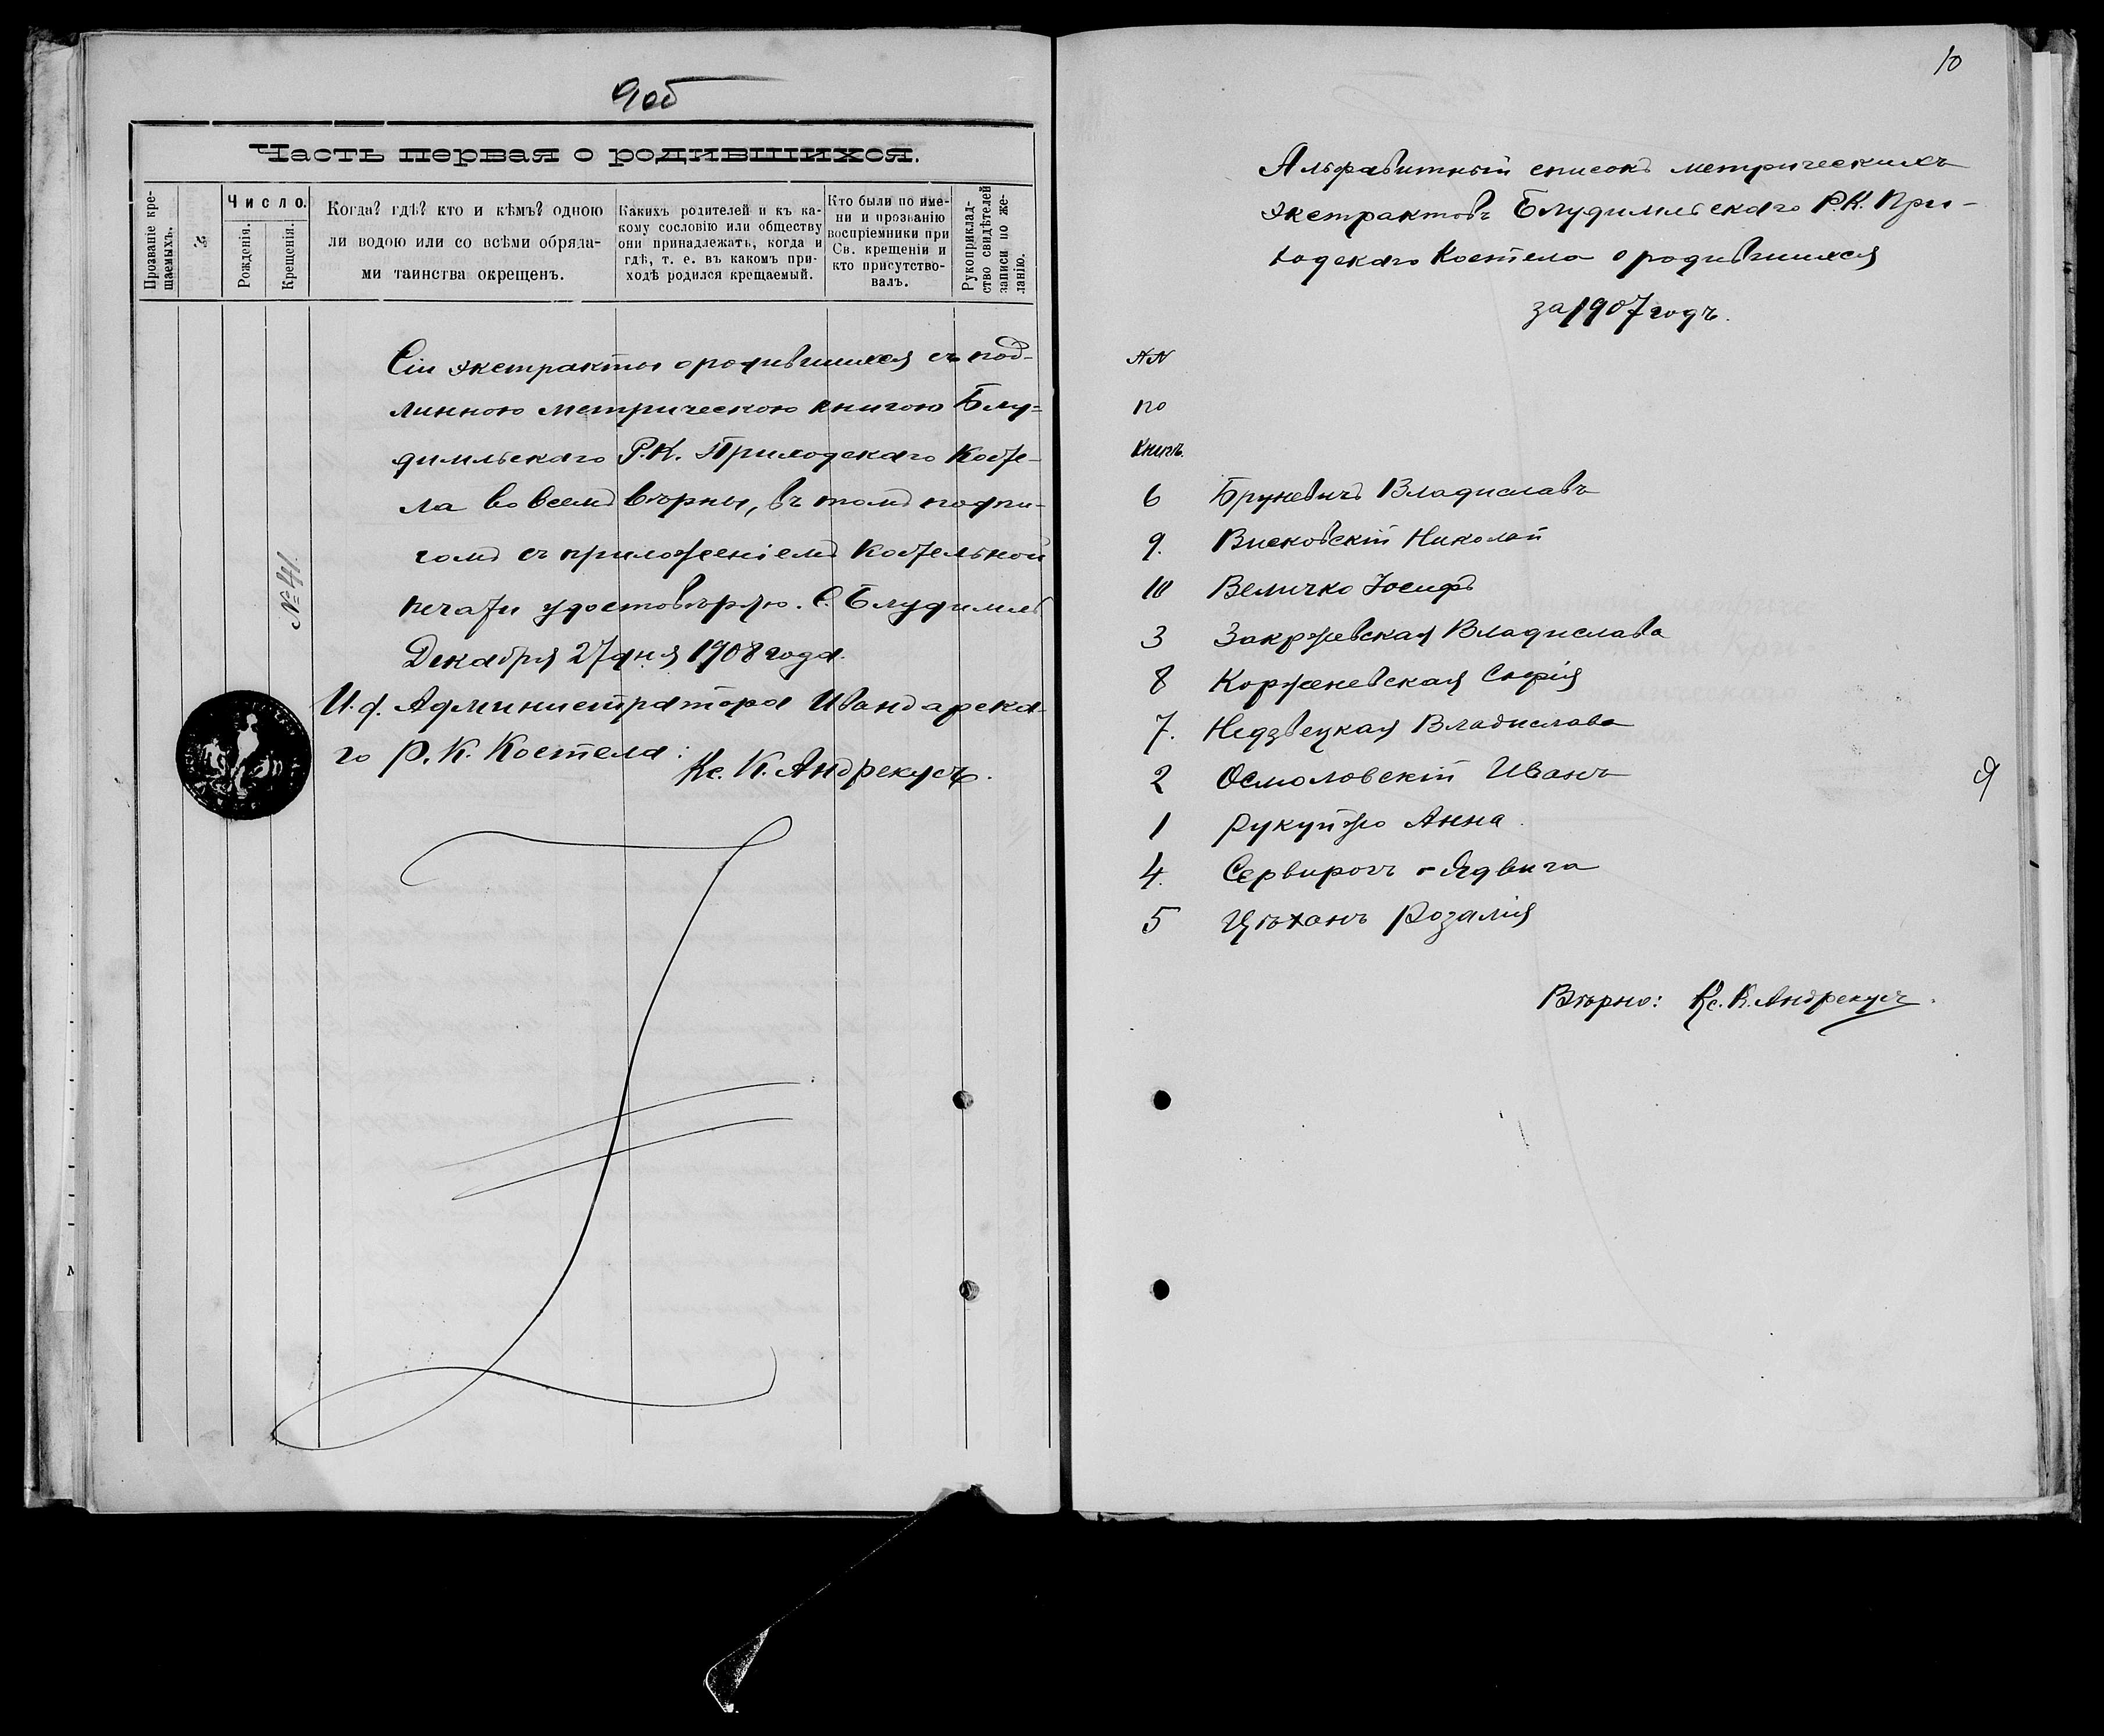 9 об
Часть первая о родившихся.
Прозваніе кре-
щаемыхъ.
№
Число.
Рожденія.
Крещенія.
Когда? гдѣ? кто и кѣмъ? одною
ли водою или со всѣми обряда-
ми таинства окрещенъ.
Какихъ родителей и къ ка-
кому сословію или обществу
они принадлежатъ, когда и
гдѣ, т. е. въ какомъ при-
ходѣ родился крещаемый.
Кто были по име-
ни и прозванію
воспріемники при
Св. крещеніи и
кто присутство-
валъ.
Рукоприклад-
ство свидѣтелей
записи по же-
ланію.
Сіи экстракты о родившихся съ под-
линною метрическою книгою Блу-
димльскаго Р.К. Приходскаго Косте-
ла во всемъ вѣрны, въ томъ подпи-
сомъ съ приложеніемъ Костельной
печати удостовѣряю. С. Блудимль
Декабря 27 дня 1908 года.
И. д. Администратора Ивандарска-
го Р. К. Костела:
Кс. К. Андрекусъ.
№ 41.
10
Альфавитный списокъ метрическихъ
экстрактовъ Блудимльскаго Р.К. При-
ходскаго Костела о родившихся
за 1907 годъ.
NN
по
книгѣ.
6 Бруневичъ Владиславъ
9. Висковскій Николай
10 Величко Іосифъ
3 Закржевская Владислава
8 Корженевская Софія
7. Недзвецкая Владислава
2 Осмоловскій Иванъ
1 Рукуйжо Анна.
4. Сервирогъ - Ядвига
5 Цѣханъ Розалія
Вѣрно: Кс. К. Андрекусъ.